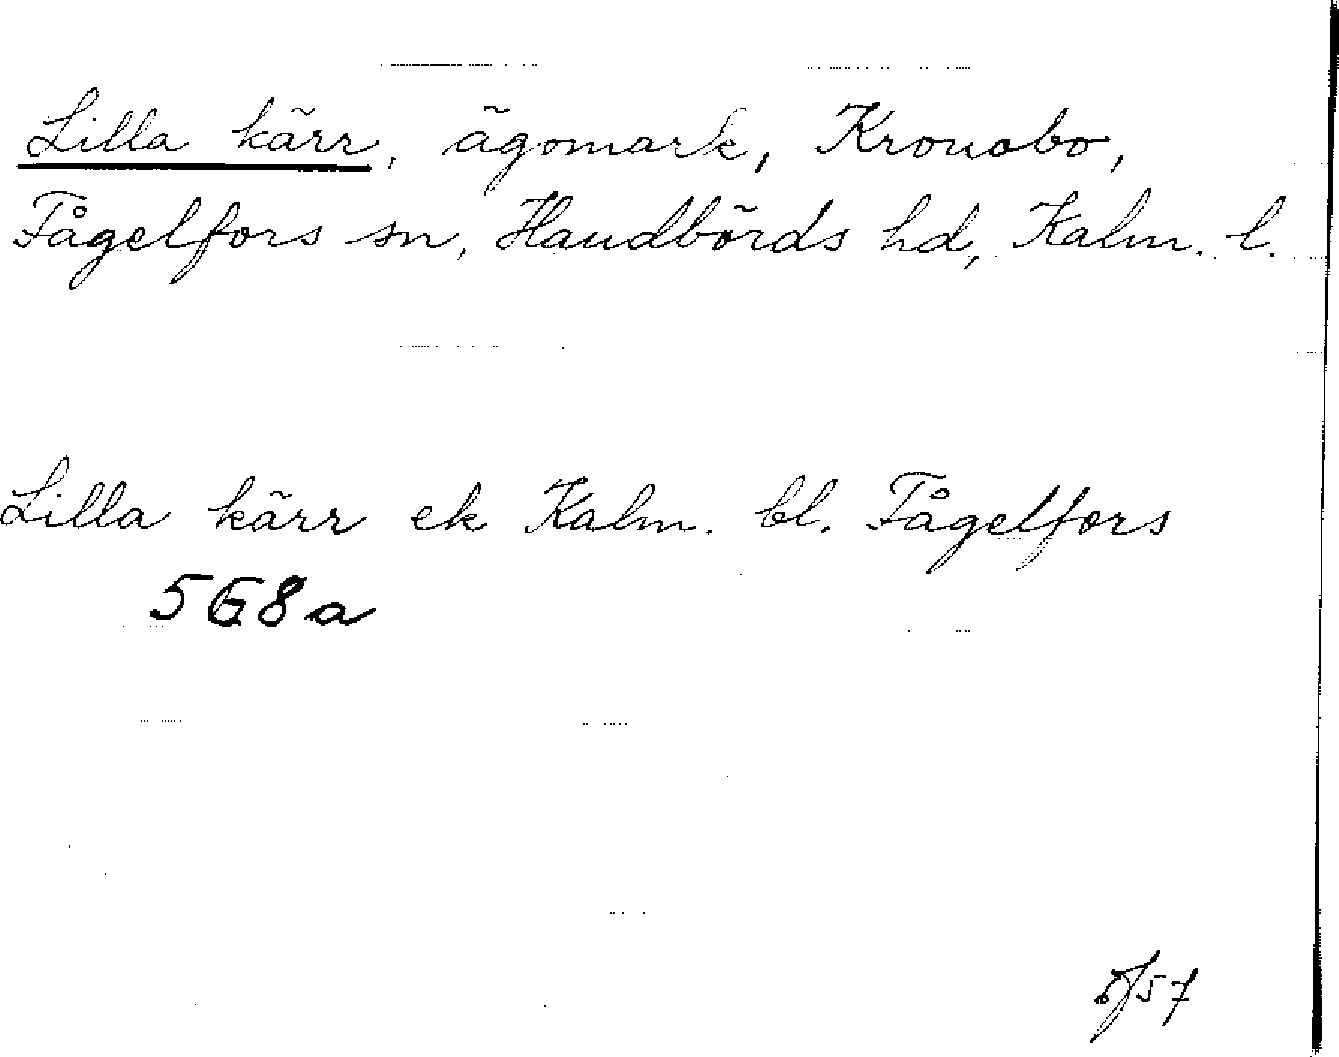 Lilla kärr, ägomark, Kronobo,
Fågelfors sn, Handbörds hd, Kalm. l.
Lilla kärr ek Kalm. bl. Fågelfors
5G8a